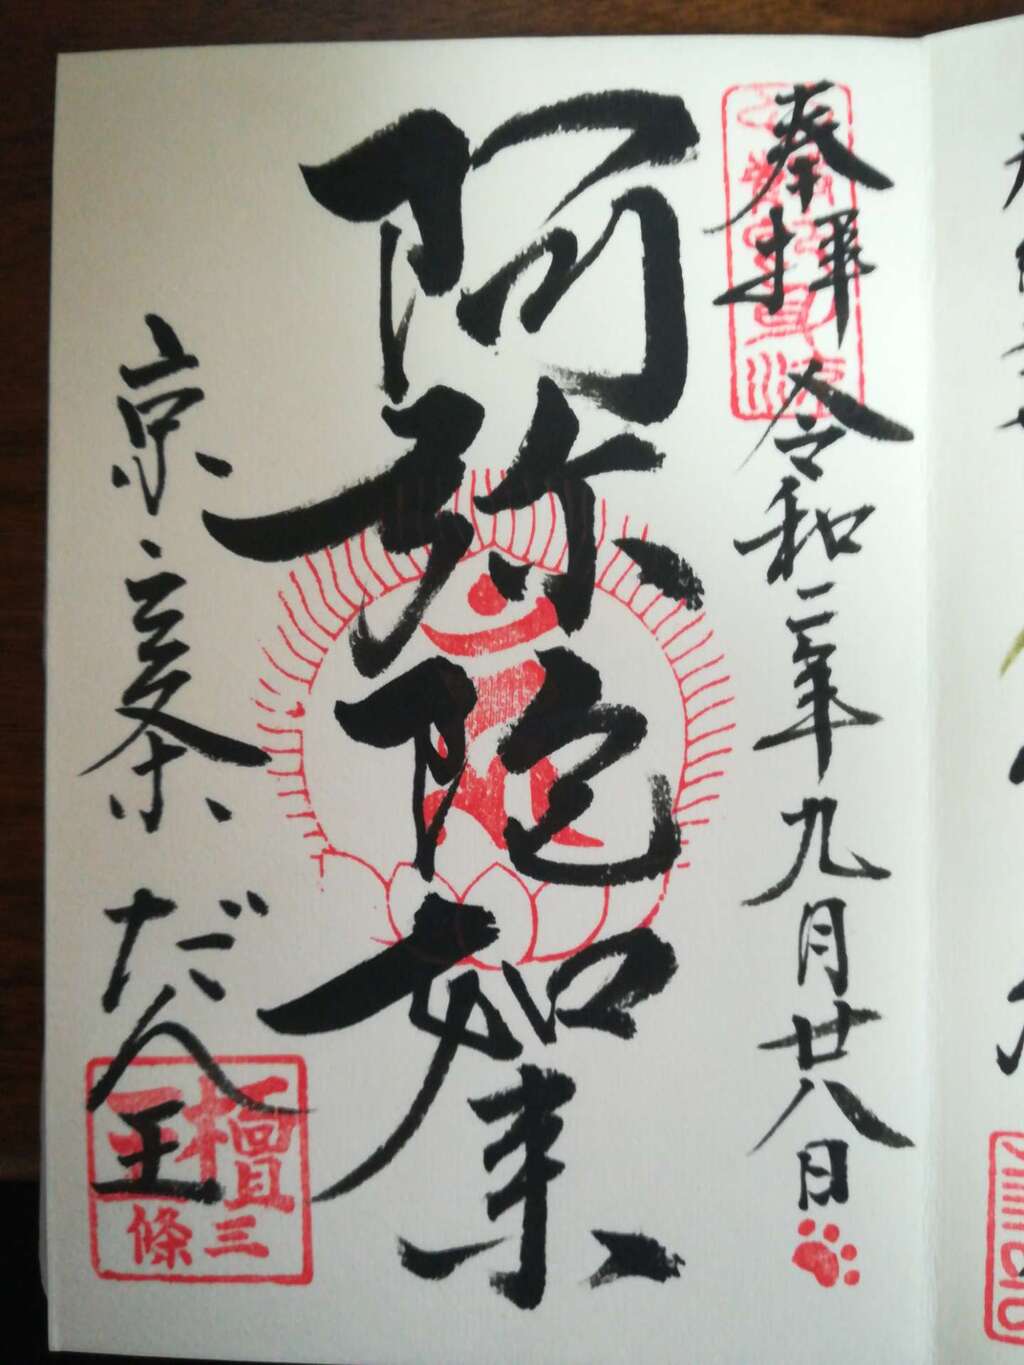 奉拝
令和二年九月廿八日
阿弥陀如来
京三条だん王
檀王
三條